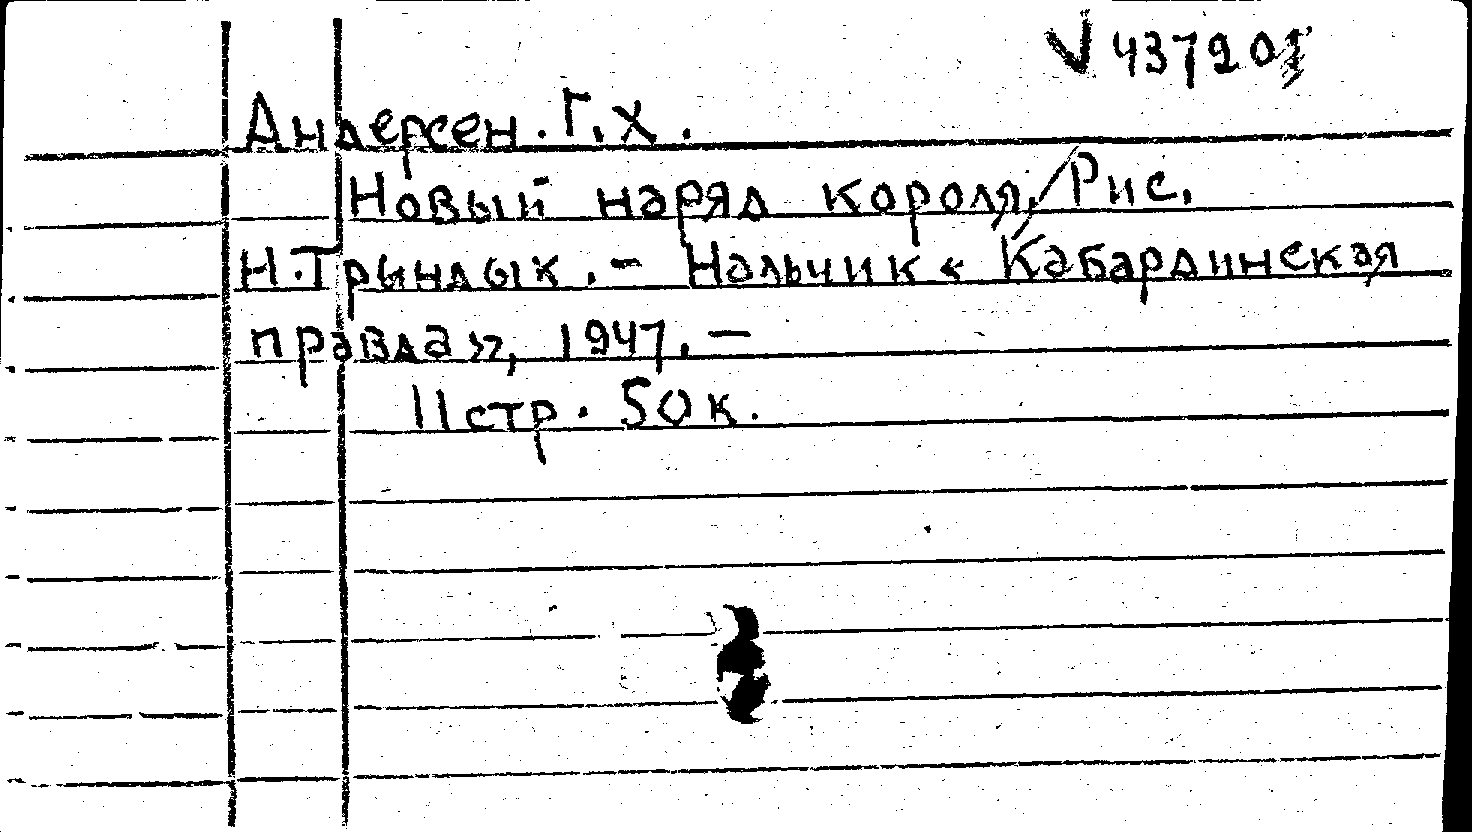 V 437201
Андерсен. Г. Х.
Новый наряд короля. / Рис.
Н. Трындык. - Нальчик « Кабардинская
правда», 1947. —
11 стр. 50 к.